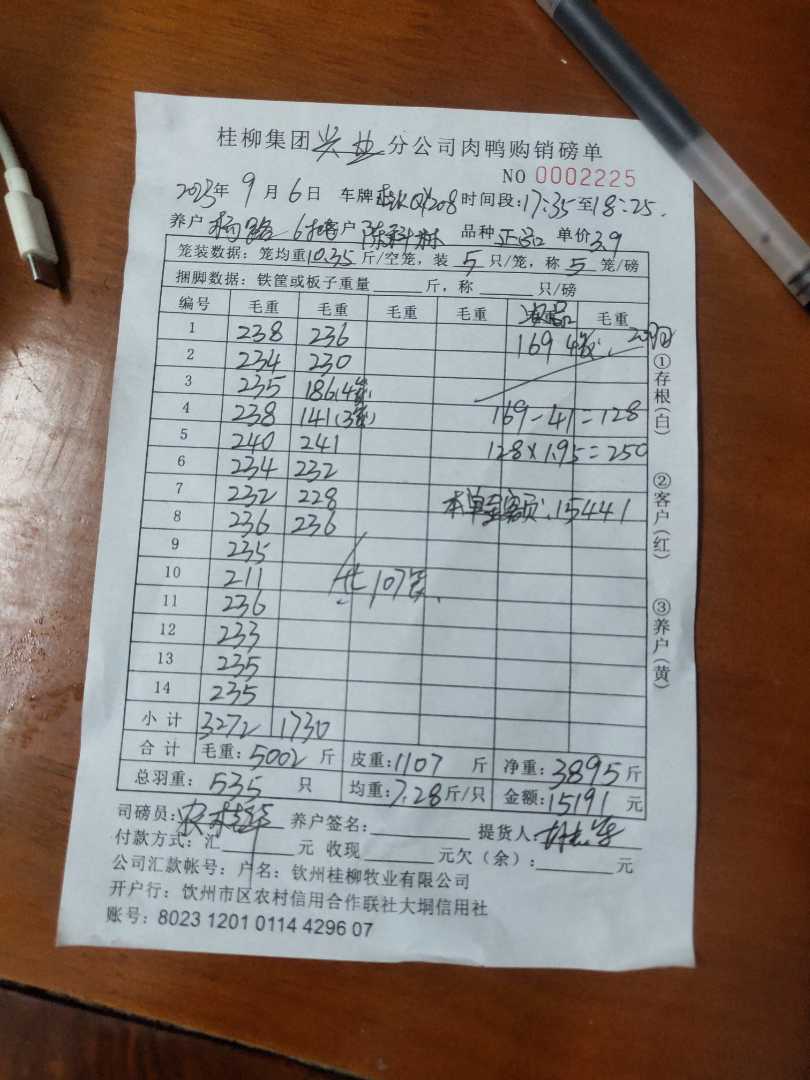 桂柳集团兴业分公司肉鸭购销磅单
NO 0002225
2025年 9月6日 车牌 时间段:17:35至18:25
养户 客户 品种 正品 单价3.9
笼装数据: 笼均重10.35斤/空笼, 装5只/笼, 称5笼/磅
捆脚数据: 铁筐或板子重量 斤, 称 只/磅
编号 毛重 毛重 毛重 毛重 毛重
1 238 236 169 4笼
2 234 230
3 235 186(4笼)
4 238 141(3笼) 169-41=128
5 240 241 128×1.95=250
6 234 232
7 232 228 本单金额:15441
8 236 236
9 235
10 211 共107笼
11 236
12 233
13 235
14 235
小计 3272 1730
合计 毛重:5002斤 皮重:1107斤 净重:3895斤
总羽重: 535只 均重:7.28斤/只 金额:15191元
司磅员: 养户签名: 提货人:
付款方式: 汇 元 收现 元欠(余): 元
公司汇款帐号: 户名: 钦州桂柳牧业有限公司
开户行: 钦州市区农村信用合作联社大垌信用社
账号: 8023 1201 0114 4296 07
①存根(白) ②客户(红) ③养户(黄)